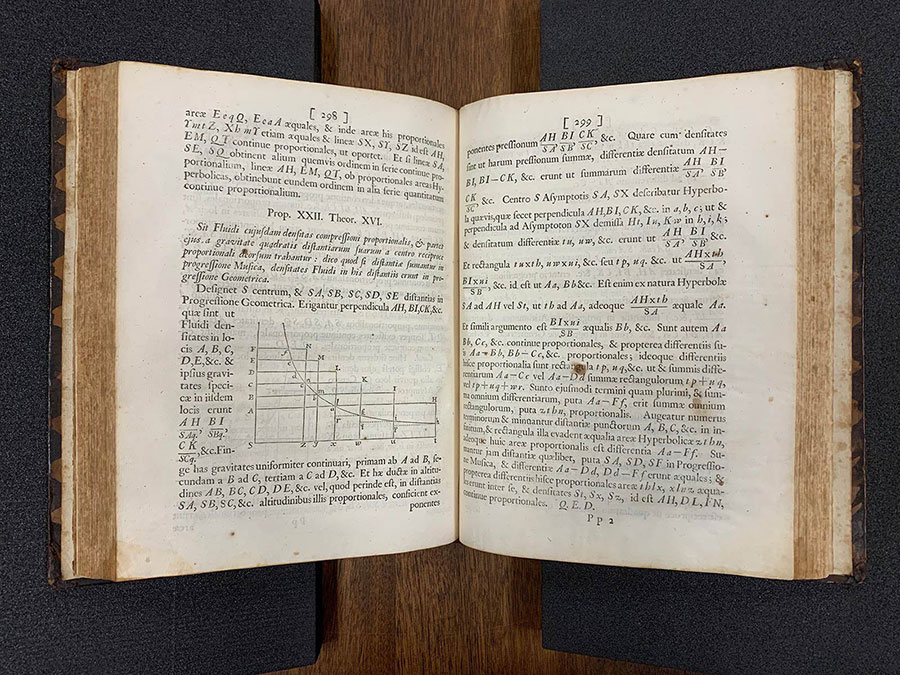 [ 298 ]
areæ EeqQ, EeaA æquales, & inde areæ his proportionales
YmtZ, XbmY etiam æquales & lineæ SX, SY, SZ id est AH,
EM, QT continue proportionales, ut oportet. Et si lineæ SA,
SE, SQ obtinent alium quemvis ordinem in serie continue pro-
portionalium, lineæ AH, EM, QT, ob proportionales areas Hy-
perbolicas, obtinebunt eundem ordinem in alia serie quantitatum
continue proportionalium.
Prop. XXII. Theor. XVI.
Sit Fluidi cujusdam densitas compressioni proportionalis, & partes
ejus a gravitate quadratis distantiarum suarum a centro reciproce
proportionali deorsum trahantur: dico quod si distantiæ sumantur in
progressione Musica, densitates Fluidi in his distantiis erunt in pro-
gressione Geometrica.
Designet S centrum, & SA, SB, SC, SD, SE distantias in
Progressione Geometrica. Erigantur perpendicula AH, BI, CK, &c.
quæ sint ut
Fluidi den-
sitates in lo-
cis A, B, C,
D, E, &c. &
ipsius gravi-
tates speci-
cæ in iisdem
locis erunt
AH BI
SAq.' SBq.'
CK
SCq. &c. Fin-
F
E
D
C
B
A
S
N
M
L
K
I
H
Z y x w u t
ge has gravitates uniformiter continuari, primam ab A ad B, se-
cundam a B ad C, tertiam a C ad D, &c. Et hæ ductæ in altitu-
dines AB, BC, CD, DE, &c. vel, quod perinde est, in distantias
SA, SB, SC, &c. altitudinibus illis proportionales, conficient ex-
ponentes
[ 299 ]
ponentes pressionum AH/SA, BI/SB, CK/SC, &c. Quare cum densitates
sint ut harum pressionum summæ, differentiæ densitatum AH—
BI, BI—CK, &c. erunt ut summarum differentiæ AH/SA, BI/SB,
CK/SC, &c. Centro S Asymptotis SA, SX describatur Hyperbo-
la quævis, quæ secet perpendicula AH, BI, CK, &c. in a, b, c; ut &
perpendicula ad Asymptoton SX demissa Ht, Iu, Kw in h, i, k;
& densitatum differentiæ tu, uw, &c. erunt ut AH/SA, BI/SB &c.
Et rectangula tu×th, uw×ui, &c. seu tp, uq, &c. ut AH×th/SA,
BI×ui/SB, &c. id est ut Aa, Bb &c. Est enim ex natura Hyperbolæ
SA ad AH vel St, ut th ad Aa, adeoque AH×th/SA æquale Aa.
Et simili argumento est BI×ui/SB æqualis Bb, &c. Sunt autem Aa
Bb, Cc, &c. continue proportionales, & propterea differentiis su-
is Aa—Bb, Bb—Cc, &c. proportionales; ideoque differentiis
hisce proportionalia sunt rectangula tp, uq, &c. ut & summis diffe-
rentiarum Aa—Cc vel Aa—Dd summæ rectangulorum tp+uq,
vel tp+uq+wr. Sunto ejusmodi termini quam plurimi, & sum-
ma omnium differentiarum, puta Aa—Ff, erit summæ omnium
rectangulorum, puta zthn, proportionalis. Augeatur numerus
terminorum & minuantur distantiæ punctorum A, B, C, &c. in in-
finitum, & rectangula illa evadent æqualia areæ Hyperbolicæ zthn,
adeoque huic areæ proportionalis est differentia Aa—Ff. Su-
mantur jam distantiæ quælibet, puta SA, SD, SF in Progressio-
ne Musica, & differentiæ Aa—Dd, Dd—Ff erunt æquales; &
propterea differentiis hisce proportionales areæ thlx, xlnz æqua-
les erunt inter se, & densitates St, Sx, Sz, id est AH, DL, FN,
continue proportionales. Q. E. D.
P p 2